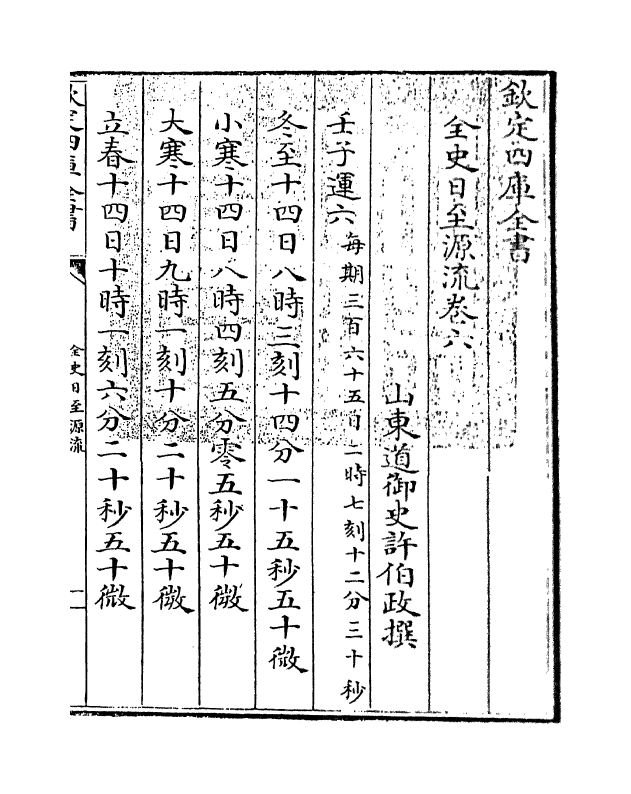 欽定四庫全書
全史日至源流卷六
山東道御史許伯政撰
壬子運六每期三百六十五日二時七刻十二分三十秒
冬至十四日八時三刻十四分一十五秒五十微
小寒十四日八時四刻五分零五秒五十微
大寒十四日九時一刻十分二十秒五十微
立春十四日十時一刻六分二十秒五十微
欽定四庫全書
全史日至源流
一